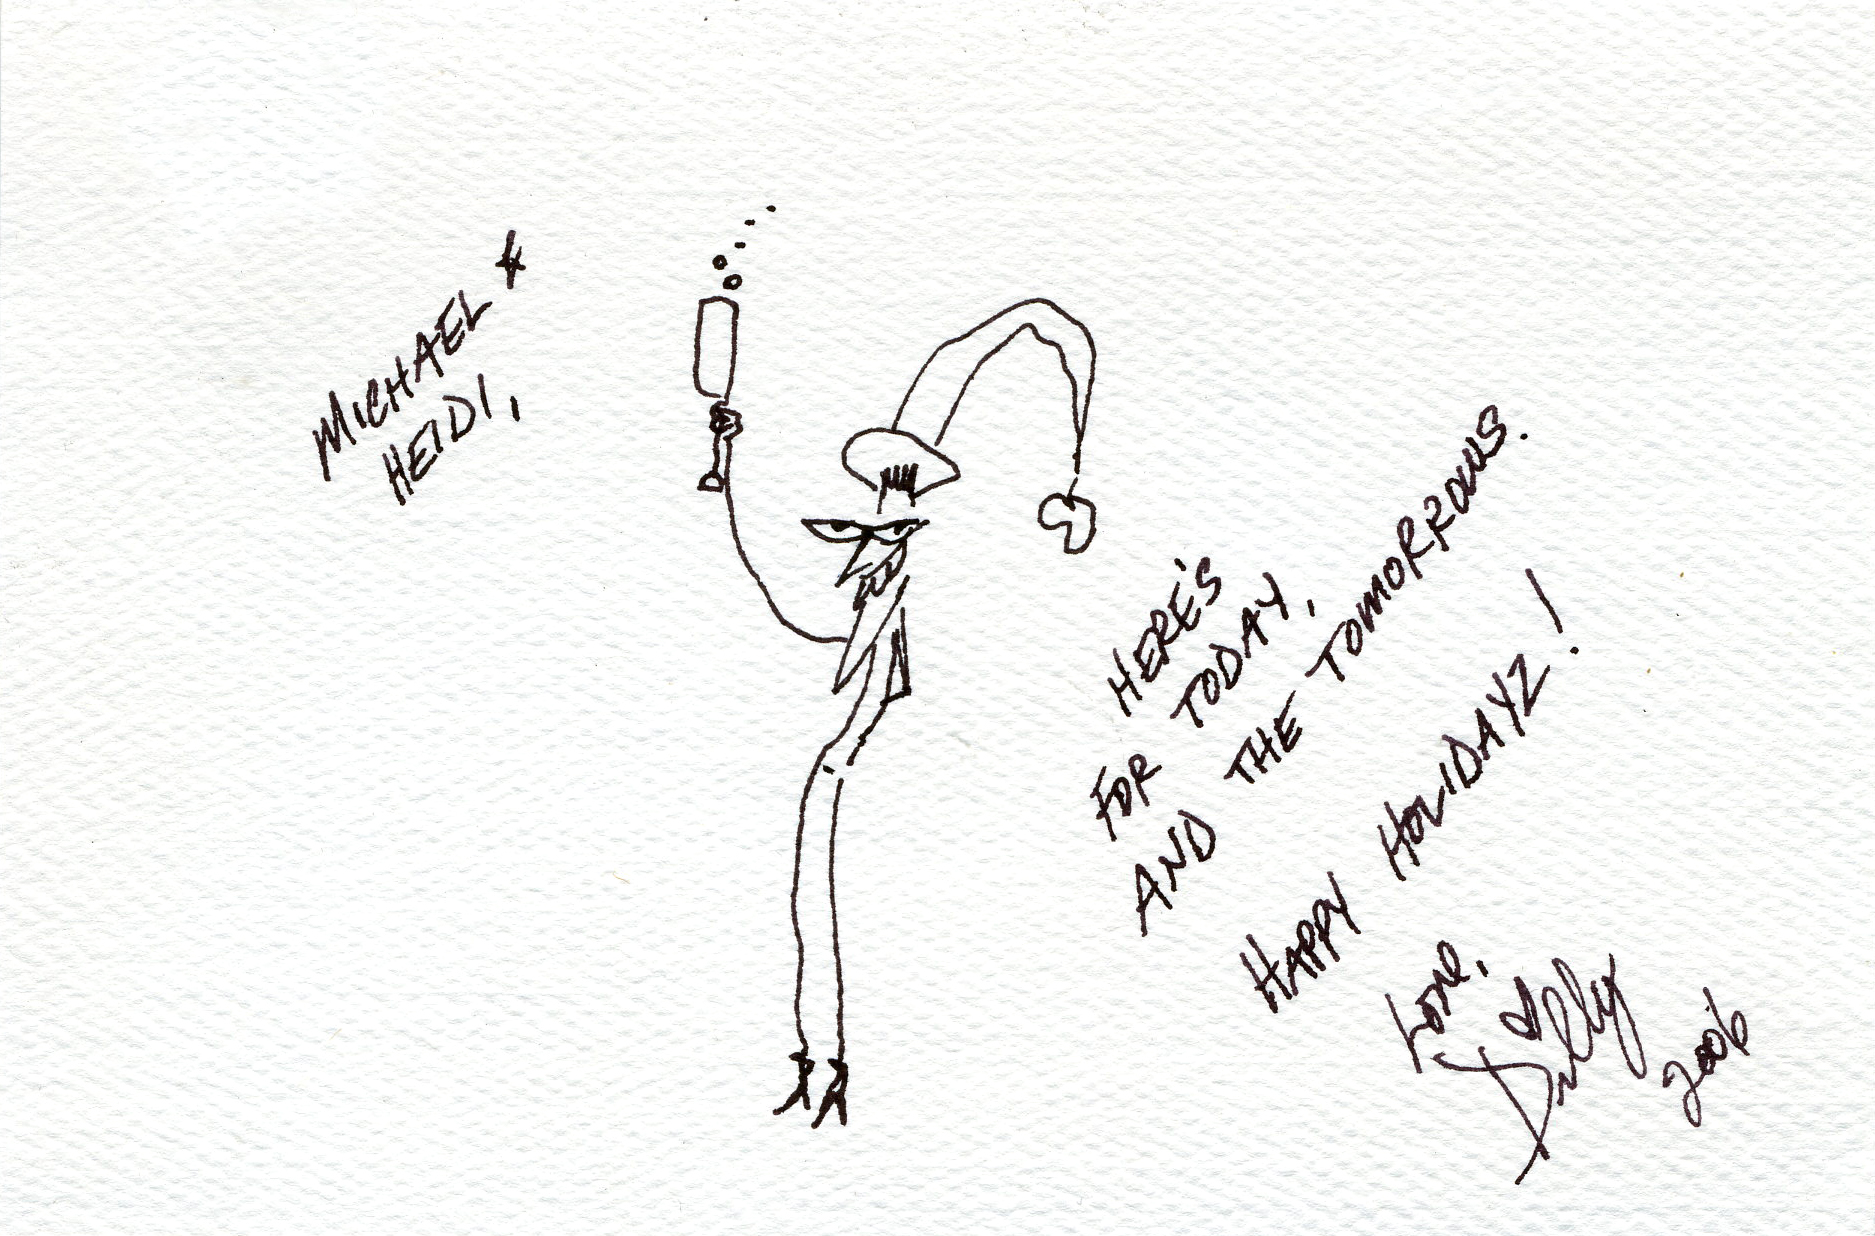 MICHAEL &
HEIDI,
HERE'S
FOR TODAY,
AND THE TOMORROWS.
HAPPY HOLIDAYZ!
Love,
2006